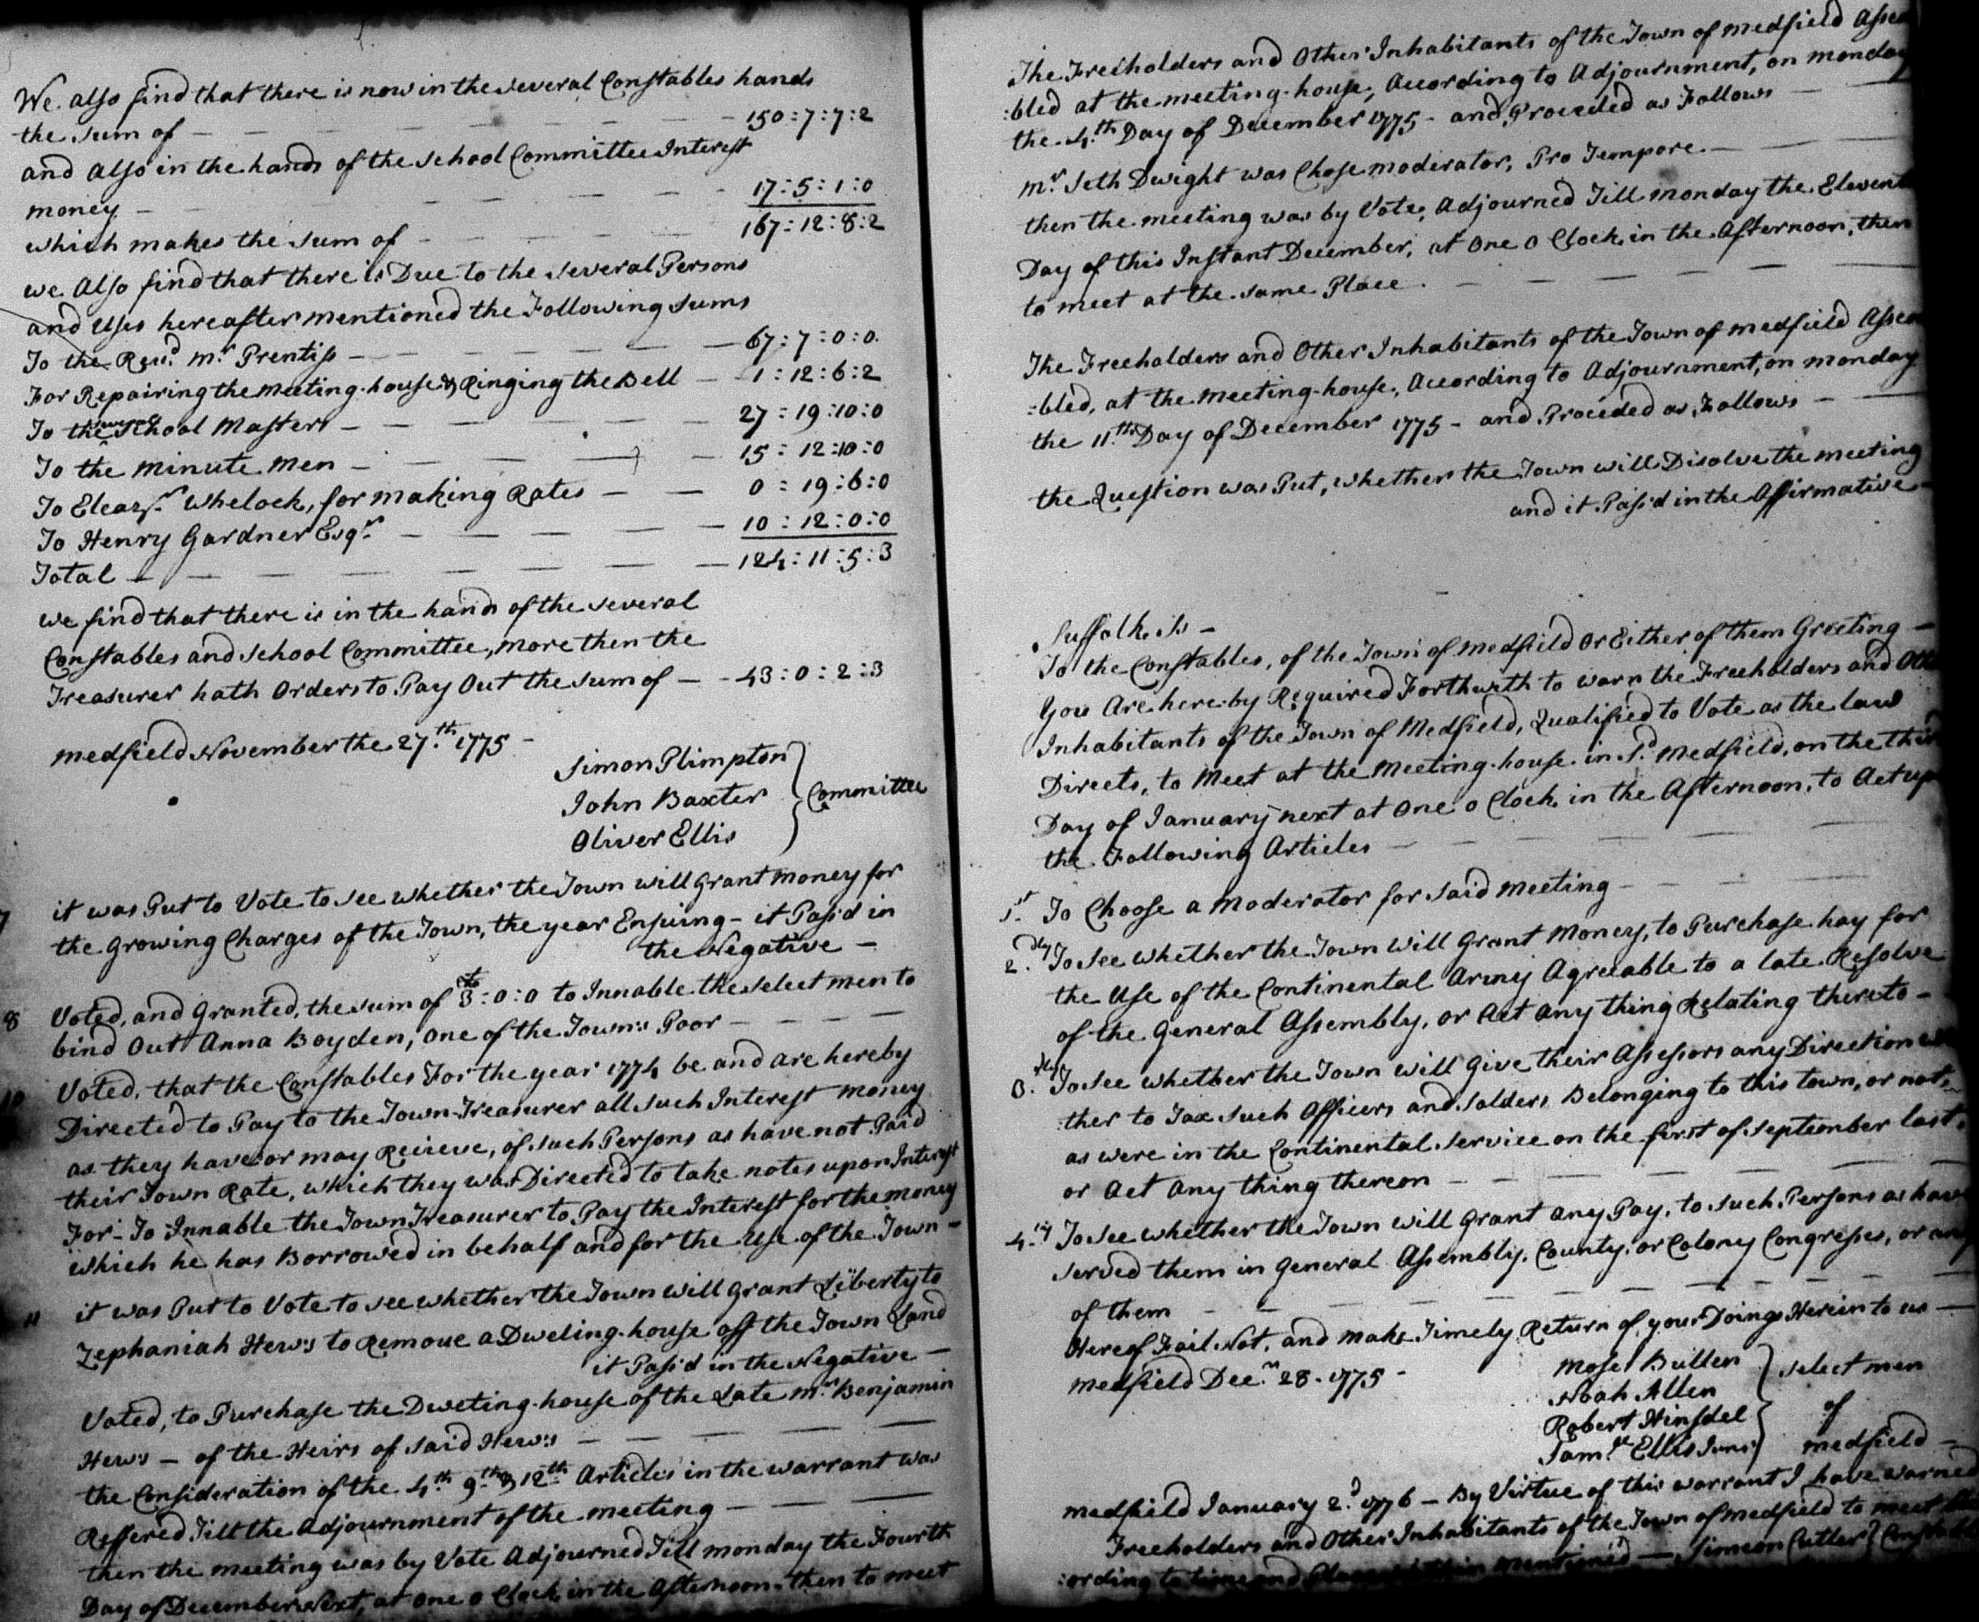 We also find that there is now in the several Constables hands
the sum of — 150:7:7:2
and also in the hands of the school Committee Interest
money — 17:5:1:0
which makes the sum of — 167:12:8:2
we Also find that there is Due to the several Persons
and Uses hereafter mentioned the Following sums
To the Revd. mr. Prentiss — 67:7:0:0
For Repairing the meeting-house & Ringing the Bell — 1:12:6:2
To the School Masters — 27:19:10:0
To the minute men — 15:12:10:0
To Eleazr. Whelock, for making Rates — 0:19:6:0
To Henry Gardner Esqr. — 10:12:0:0
Total — 124:11:5:3
we find that there is in the hands of the several
Constables and school Committee, more then the
Treasurer hath Orders to Pay Out the sum of — 43:0:2:3
medfield November the 27th. 1775 –
Simon Plimpton
John Baxter } Committee
Oliver Ellis
7 it was Put to Vote to see whether the Town will Grant money for
the growing Charges of the Town, the year Ensuing – it Pass'd in
the Negative –
8 Voted, and Granted, the sum of £3:0:0 to Innable the select men to
bind Out Anna Boyden, one of the Town's Poor —
10 Voted, that the Constables For the year 1774 be and are hereby
Directed to Pay to the Town-Treasurer all such Interest money
as they have or may Reieve, of such Persons as have not Paid
their Town Rate, which they was Directed to take notes upon Interest
For – To Innable the Town Treasurer to Pay the Interest for the money
which he has Borrowed in behalf and for the Use of the Town –
11 it was Put to Vote to see whether the Town will Grant Liberty to
Zephaniah Hews to Remove a Dweling-house off the Town Land
it Pass'd in the Negative —
Voted, to Purchase the Dweling-house of the Late mr. Benjamin
Hews – of the Heirs of said Hews —
the Consideration of the 4th. 9th. & 12th. Articles in the warrant was
Reffered Till the Adjournment of the meeting —
then the meeting was by Vote Adjourned Till monday the Fourth
Day of December Next, at one o Clock in the Afternoon, then to meet
The Freeholders and Other Inhabitants of the Town of medfield Assem
:bled at the meeting-house, According to Adjournment, on monday
the 4th. Day of December 1775 – and Proceeded as Follows —
mr. Seth Dwight was Chose moderator, Pro Tempore. —
then the meeting was by Vote, Adjourned Till monday the Eleventh
Day of this Instant December, at one o Clock in the Afternoon, then
to meet at the same Place. —
The Freeholders and Other Inhabitants of the Town of medfield Assem
:bled, at the meeting-house, According to Adjournment, on monday
the 11th. Day of December 1775 – and Proceded as Follows —
the Question was Put, whether the Town will Disolve the meeting
and it Pass'd in the Affirmative –
Suffolk, ss –
To the Constables, of the Town of medfield Or Either of them Greeting –
You Are here-by Required Forthwith to warn the Freeholders and Other
Inhabitants of the Town of Medfield, Qualified to Vote as the law
Directs, to Meet at the Meeting-house in sd. Medfield, on the third
Day of January next at one o Clock in the Afternoon, to Act upon
the Following Articles —
1st. To Choose a Moderator for said meeting —
2dly. To see whether the Town will Grant Money, to Purchase hay for
the Use of the Continental Army Agreeable to a late Resolve
of the General Assembly, or Act any thing Relating thereto –
3dly. To see whether the Town will Give their Assessors any Direction
ther to Tax such Officers and solders Belonging to this town, or not,
as were in the Continental service on the first of september last,
or Act Any thing thereon —
4ly. To see whether the Town will Grant any Pay, to such Persons as have
served them in General Assembly, County, or Colony Congresses, or any
of them —
Hereof Fail Not, and make Timely Return of your Doings Herein to us —
medfield Decm. 28. 1775 –
Moses Bullen
Noah Allen } select men
Robert Hinsdel of
Samll. Ellis Junr. } medfield –
medfield January 2d. 1776 – By Virtue of this warrant I have warned
Freeholders and Other Inhabitants of the Town of medfield to meet
:ording to time and Place within mentioned —, Simeon Cutler } Constable